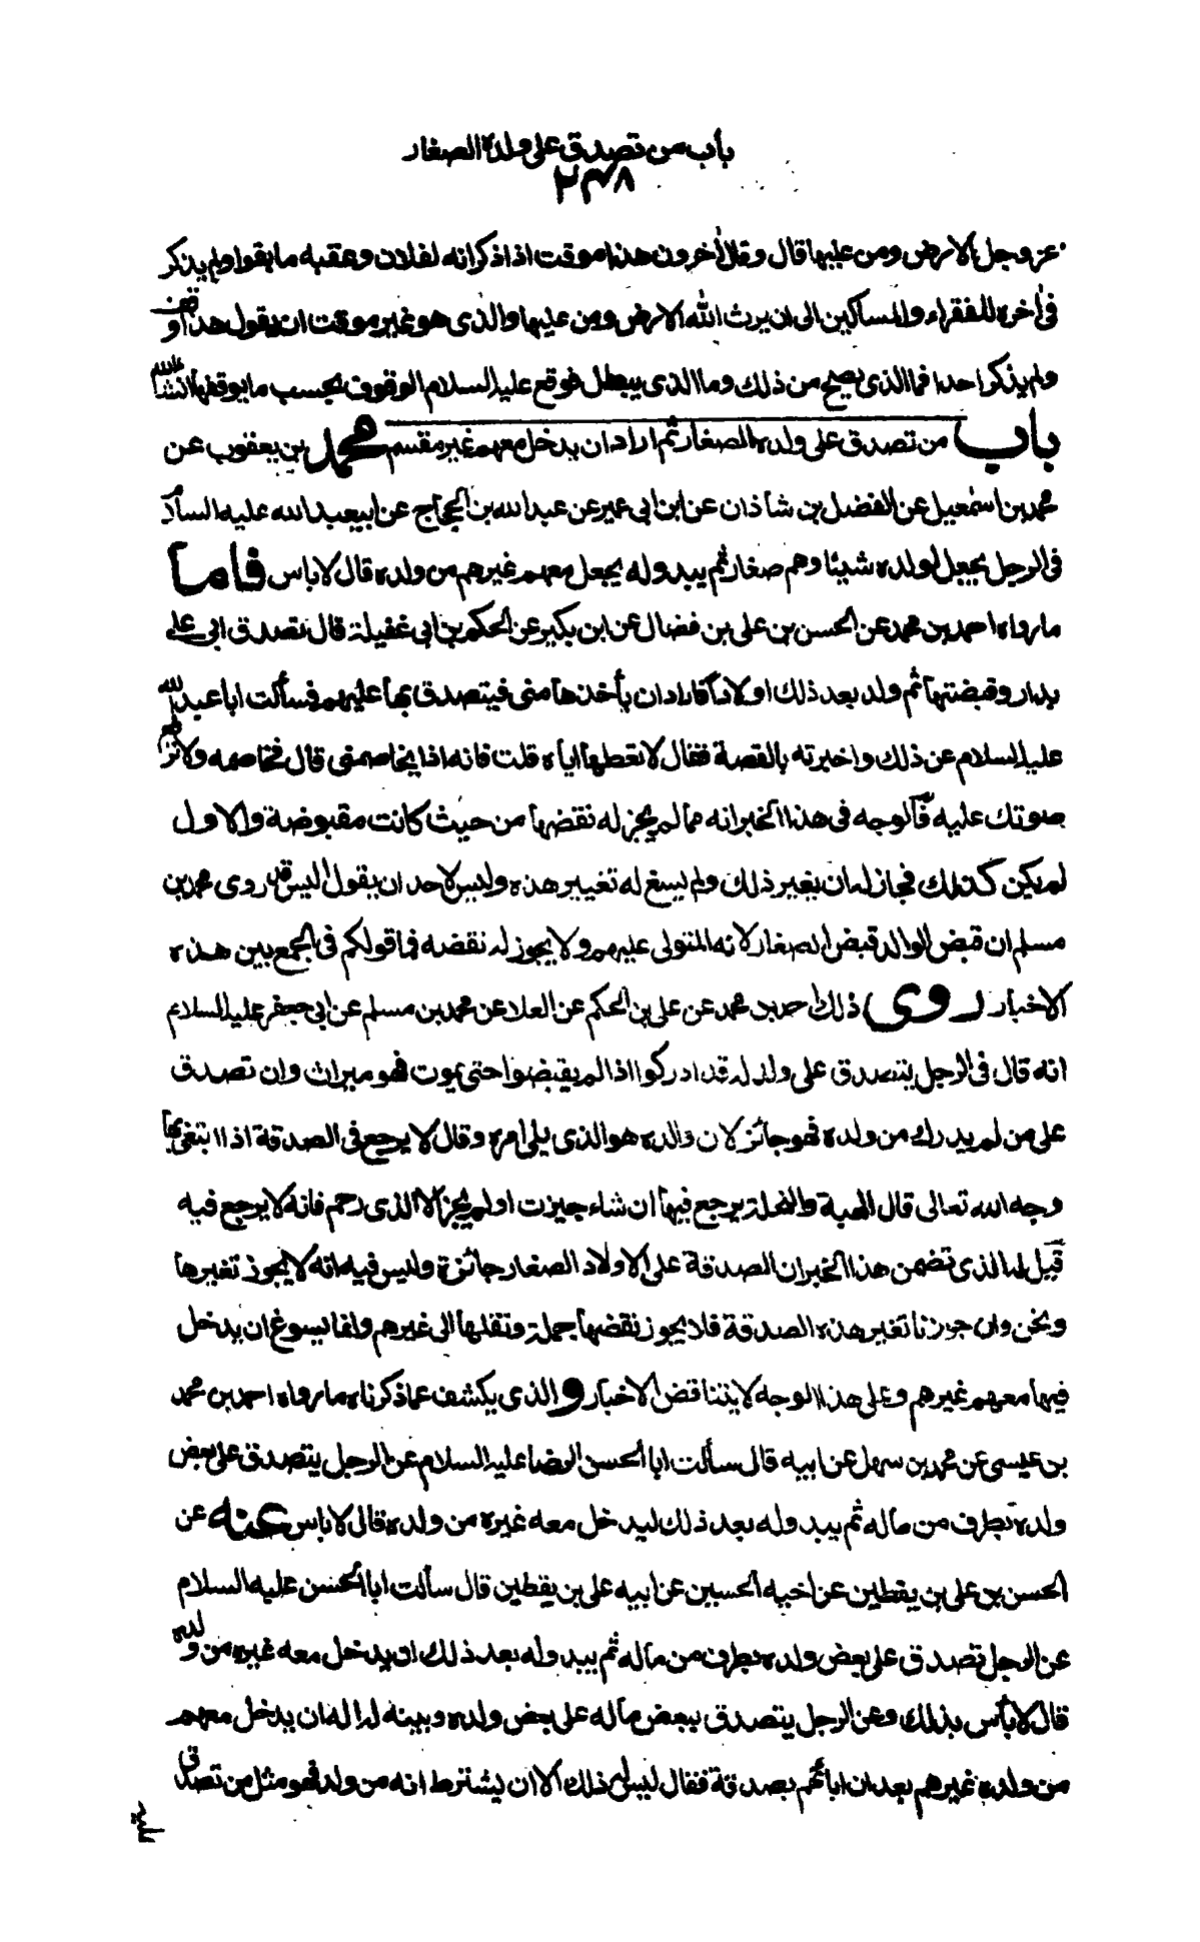 باب من تصدق على ولده الصغار
٢٣٨
عز وجل الارض ومن عليها قال وقال اخرون هذا موقت اذا ذكر انه لفلان وعقبه ما بقوا ولم يذكر
فى اخره للفقراء والمساكين الى ان يرث الله الارض ومن عليها والذى هو غير موقت ان يقول هذا وقف
ولم يذكر احدا فما الذى يصح من ذلك وما الذى يبطل فوقع عليه السلام الوقوف بحسب ما يوقفها انشاء الله
باب من تصدق على ولده الصغار ثم اراد ان يدخل معهم غيرهم محمد بن يعقوب عن
محمد بن اسمعيل عن الفضل بن شاذان عن ابن ابى عمير عن عبد الله بن الحجاج عن ابيعبد الله عليه السلام
فى الرجل يجعل لولده شيئا وهم صغار ثم يبدو له يجعل معهم غيرهم من ولده قال لا باس فاما
ما رواه احمد بن محمد عن الحسن بن على بن فضال عن ابن بكير عن الحكم بن ابى غفيلة قال تصدق ابى على
بدار وقبضتها ثم ولد بعد ذلك اولاد فاراد ان يأخذها منى فيتصدق بها عليهم فسألت ابا عبد الله
عليه السلام عن ذلك واخبرته بالقصة فقال لا تعطها اياه قلت فانه اذا يخاصمنى قال فخاصمه ولا ترفع
صوتك عليه فالوجه فى هذا الخبر انه مما لم يجز له نقضها من حيث كانت مقبوضة والاول
لم يكن كذلك فجاز له ان يغير ذلك ولم يسغ له تغيير هذه وليس لاحد ان يقول اليس قد روى محمد بن
مسلم ان قبض الوالد قبض الصغار لانه المتولى عليهم ولا يجوز له نقضه فما قولكم فى الجمع بين هذه
الاخبار روى ذلك احمد بن محمد عن على بن الحكم عن العلا عن محمد بن مسلم عن ابى جعفر عليه السلام
انه قال فى الرجل يتصدق على ولد له قد ادركوا اذا لم يقبضوا حتى يموت فهو ميراث وان تصدق
على من لم يدرك من ولده فهو جائز لان والده هو الذى يلى امره وقال لا يرجع فى الصدقة اذا ابتغى بها
وجه الله تعالى قال الهبة والنحلة يرجع فيها ان شاء حيزت او لم يحز الا لذى رحم فانه لا يرجع فيه
قيل له الذى تضمن هذا الخبر ان الصدقة على الاولاد الصغار جائزة وليس فيه انه لا يجوز تغيرها
ونحن وان جوزنا تغير هذه الصدقة فلا يجوز نقضها جملة ونقلها الى غيرهم وانما يسوغ ان يدخل
فيها معهم غيرهم وعلى هذا الوجه لا يتناقض الاخبار والذى يكشف عما ذكرناه ما رواه احمد بن محمد
بن عيسى عن محمد بن سهل عن ابيه قال سألت ابا الحسن الرضا عليه السلام عن الرجل يتصدق على بعض
ولده بطرف من ماله ثم يبدو له بعد ذلك ليدخل معه غيره من ولده قال لا باس عنه عن
الحسن بن على بن يقطين عن اخيه الحسين عن ابيه على بن يقطين قال سألت ابا الحسن عليه السلام
عن الرجل تصدق على بعض ولده بطرف من ماله ثم يبدو له بعد ذلك ان يدخل معه غيره من ولده
قال لا بأس بذلك وعن الرجل يتصدق ببعض ماله على بعض ولده ويبينه لهم اله ان يدخل معهم
من ولده غيرهم بعد ان ابانهم بصدقة فقال ليس له ذلك الا ان يشترط انه من ولد فهو مثل من تصدق
عليه